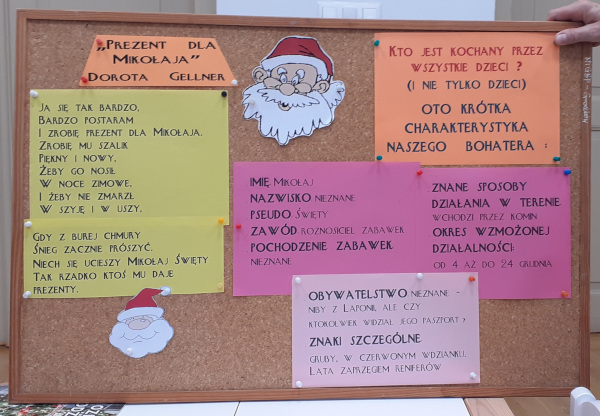 „Prezent dla
Mikołaja”
Dorota Gellner
Ja się tak bardzo,
Bardzo postaram
I zrobię prezent dla Mikołaja.
Zrobię mu szalik
Piękny i nowy,
Żeby go nosił
W noce zimowe,
I żeby nie zmarzł
W szyję i w uszy,
Gdy z burej chmury
Śnieg zacznie prószyć.
Niech się ucieszy Mikołaj Święty
Tak rzadko ktoś mu daje
prezenty.
Kto jest kochany przez
wszystkie dzieci ?
(i nie tylko dzieci)
Oto krótka
charakterystyka
naszego bohatera :
Imię Mikołaj
Nazwisko nieznane
Pseudo Święty
Zawód roznosiciel zabawek
Pochodzenie zabawek
nieznane
Znane sposoby
działania w terenie
wchodzi przez komin
Okres wzmożonej
działalności:
od 4 aż do 24 grudnia
Obywatelstwo nieznane –
niby z Laponii, ale czy
ktokolwiek widział jego paszport?
Znaki szczególne
gruby, w czerwonym wdzianku.
Lata zaprzęgiem reniferów